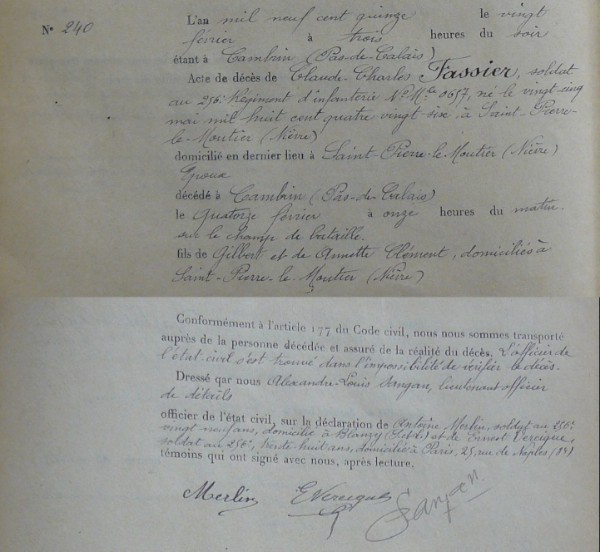 N° 240
L'an mil neuf cent quinze le vingt
février à trois heures du soir
étant à Cambrin (Pas-de-Calais)
Acte de décès de Claude-Charles Tassier, soldat
au 256e Régiment d'infanterie N° Mle 0657, né le vingt cinq
mai mil huit cent quatre vingt six à Saint-Pierre-
le-Moutier (Nièvre)
domicilié en dernier lieu à Saint-Pierre-le-Moutier (Nièvre)
Epoux
décédé à Cambrin (Pas-de-Calais)
le Quatorze février à onze heures du matin
sur le champ de bataille.
fils de Gilbert et de Annette Clément, domiciliés à
Saint-Pierre-le-Moutier (Nièvre)
Conformément à l'article 177 du Code civil, nous nous sommes transporté
auprès de la personne décédée et assuré de la réalité du décès. L'officier de
l'état civil s'est trouvé dans l'impossibilité de vérifier le décès.
Dressé qar nous Alexandre-Louis lieutenant officier
de détails
officier de l'état civil, sur la déclaration de Antoine Merlin, soldat au 256e
vingt neuf ans, domicilié à Blanzy (S.et.L.) et de Ernest Vereecque,
soldat au 256e, trente huit ans, domicilié à Paris, 25 rue de Naples (8e)
témoins qui ont signé avec nous, après lecture.
Merlin